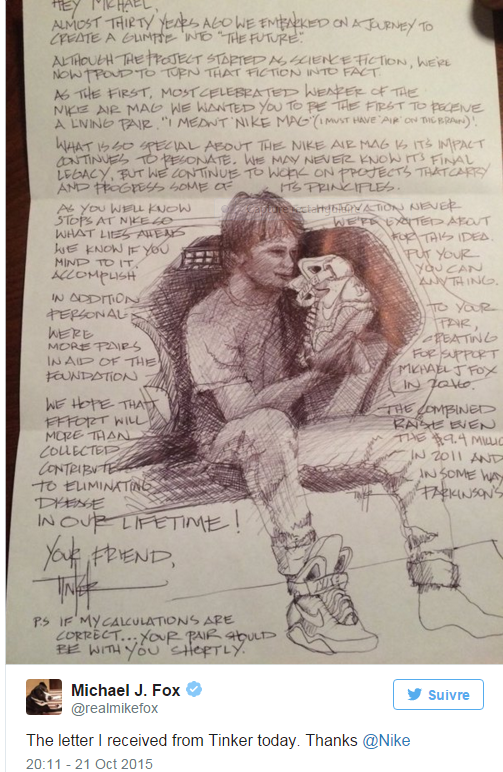 HEY MICHAEL,
ALMOST THIRTY YEARS AGO WE EMBARKED ON A JOURNEY TO
CREATE A GLIMPSE INTO "THE FUTURE".
ALTHOUGH THE PROJECT STARTED AS SCIENCE FICTION, WE'RE
NOW PROUD TO TURN THAT FICTION INTO FACT.
AS THE FIRST, MOST CELEBRATED WEARER OF THE
NIKE AIR MAG WE WANTED YOU TO BE THE FIRST TO RECEIVE
A LIVING PAIR. "I MEANT 'NIKE MAG' (I MUST HAVE 'AIR' ON THE BRAIN)!
WHAT IS SO SPECIAL ABOUT THE NIKE AIR MAG IS ITS IMPACT
CONTINUES TO RESONATE. WE MAY NEVER KNOW IT'S FINAL
LEGACY, BUT WE CONTINUE TO WORK ON PROJECTS THAT CARRY
AND PROGRESS SOME OF ITS PRINCIPLES.
AS YOU WELL KNOW INNOVATION NEVER
STOPS AT NIKE SO WE'RE EXCITED ABOUT
WHAT LIES AHEAD FOR THIS IDEA.
WE KNOW IF YOU PUT YOUR
MIND TO IT, YOU CAN
ACCOMPLISH ANYTHING.
IN ADDITION TO YOUR
PERSONAL PAIR,
WE'RE CREATING
MORE PAIRS FOR SUPPORT
IN AID OF THE MICHAEL J FOX
FOUNDATION IN 2016.
WE HOPE THAT THE COMBINED
EFFORT WILL RAISE EVEN
MORE THAN THE $9.4 MILLIO
COLLECTED IN 2011 AND
CONTRIBUTE IN SOME WAY
TO ELIMINATING PARKINSON'S
DISEASE
IN OUR LIFETIME!
YOUR FRIEND,
TINKER
PS IF MY CALCULATIONS ARE
CORRECT... YOUR PAIR SHOULD
BE WITH YOU SHORTLY.
Michael J. Fox
@realmikefox
Suivre
The letter I received from Tinker today. Thanks @Nike
20:11 - 21 Oct 2015